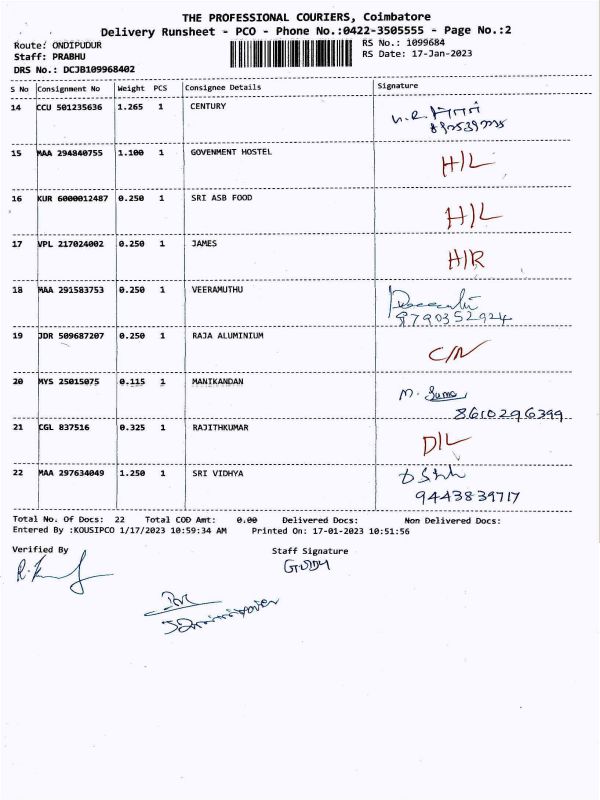 THE PROFESSIONAL COURIERS, Coimbatore
Delivery Runsheet - PCO - Phone No.:0422-3505555 - Page No.:2
Route: ONDIPUDUR RS No.: 1099684
Staff: PRABHU RS Date: 17-Jan-2023
DRS No.: DCJB109968402
S No Consignment No Weight PCS Consignee Details Signature
14 CCU 501235636 1.265 1 CENTURY
15 MAA 294840755 1.100 1 GOVENMENT HOSTEL H/L
16 KUR 6000012487 0.250 1 SRI ASB FOOD H/L
17 VPL 217024002 0.250 1 JAMES H/R
18 MAA 291583753 0.250 1 VEERAMUTHU
8790352924
19 JDR 509687207 0.250 1 RAJA ALUMINIUM C/N
20 MYS 25015075 0.115 1 MANIKANDAN M. Suma
8610296399
21 CGL 837516 0.325 1 RAJITHKUMAR D/L
22 MAA 297634049 1.250 1 SRI VIDHYA
9443839717
Total No. Of Docs: 22 Total COD Amt: 0.00 Delivered Docs: Non Delivered Docs:
Entered By :KOUSIPCO 1/17/2023 10:59:34 AM Printed On: 17-01-2023 10:51:56
Verified By Staff Signature